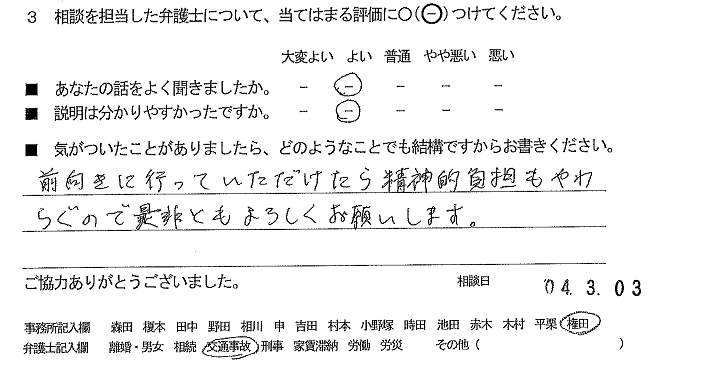 3 相談を担当した弁護士について、当てはまる評価に○(⊖)つけてください。
大変よい よい 普通 やや悪い 悪い
■ あなたの話をよく聞きましたか。 － － － － －
■ 説明は分かりやすかったですか。 － － － － －
■ 気がついたことがありましたら、どのようなことでも結構ですからお書きください。
前向きに行っていただけたら精神的負担もやわ
らぐので是非ともよろしくお願いします。
ご協力ありがとうございました。 相談日 '04. 3. 03
事務所記入欄 森田 榎本 田中 野田 相川 申 吉田 村本 小野塚 時田 池田 赤木 木村 平栗 権田
弁護士記入欄 離婚・男女 相続 交通事故 刑事 家賃滞納 労働 労災 その他( )